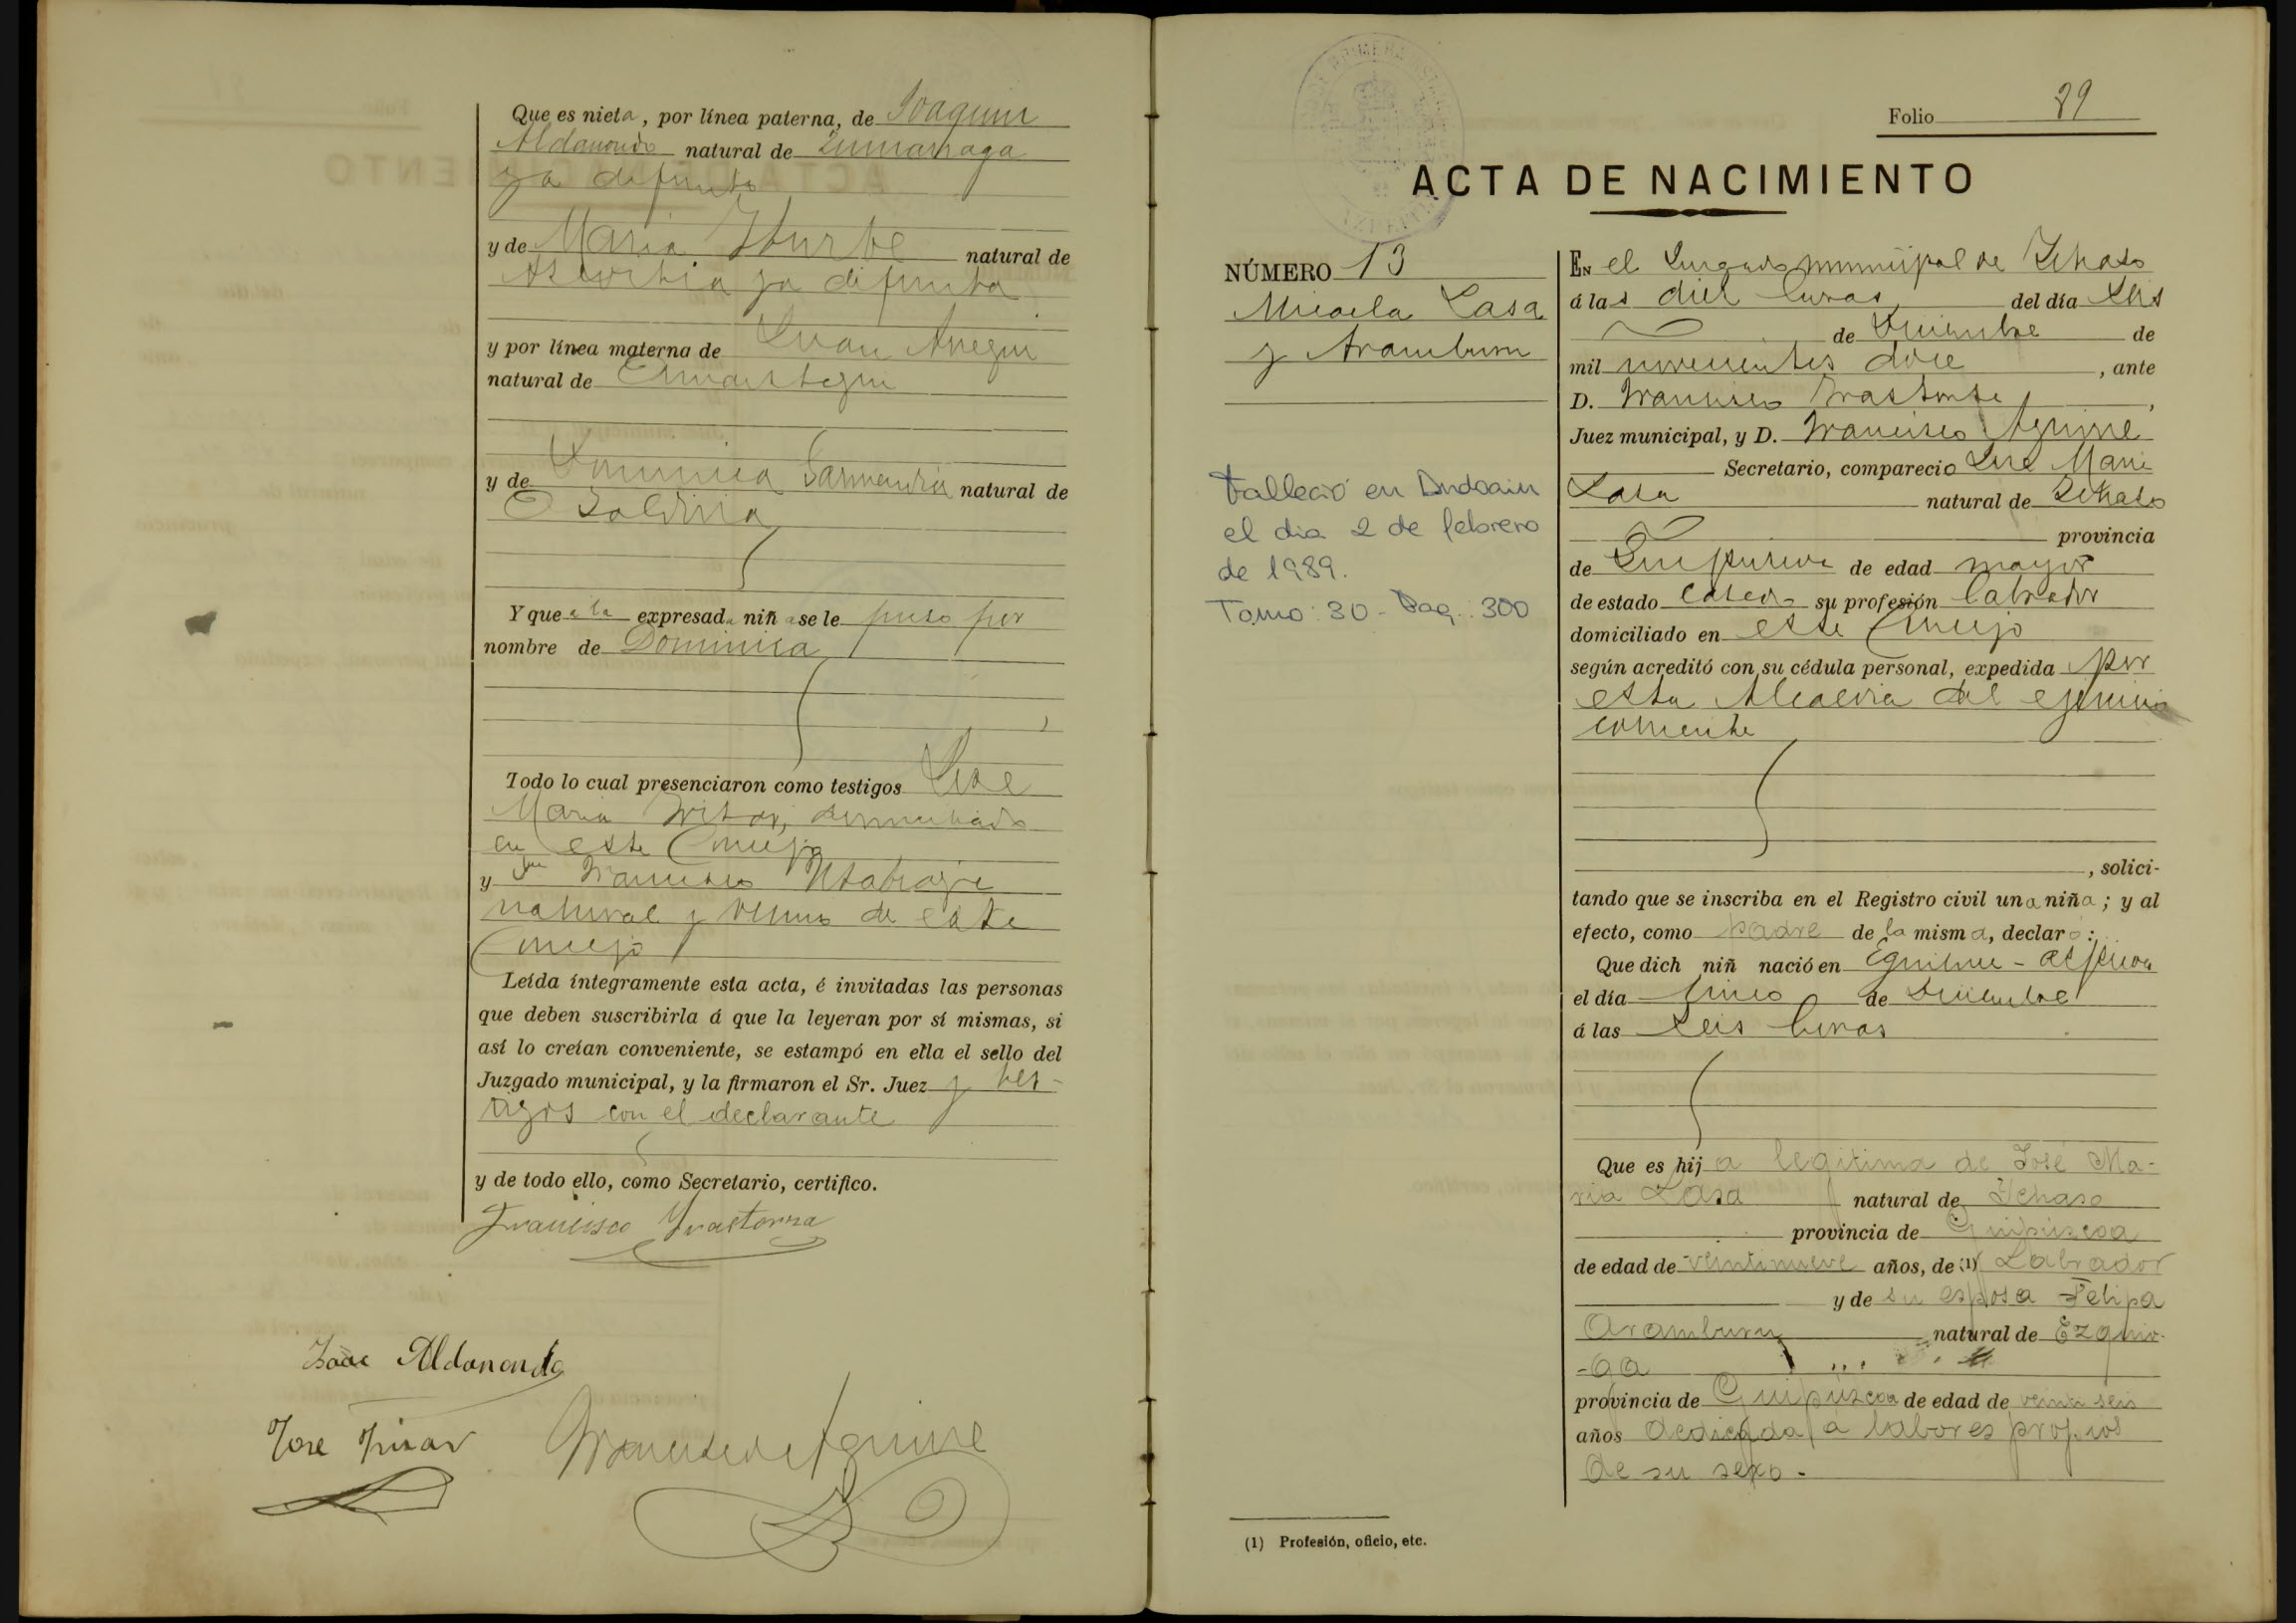 Que es nieta, por línea paterna, de Joaquin
Aldanondo natural de Zumarraga
ya difunto
y de Maria Iturbe natural de
ya difunta
y por línea materna de Juan Aregui
natural de Ormaiztegui
y de Dominica natural de
Y que a la expresada niña se le puso por
nombre de Dominica
Todo lo cual presenciaron como testigos José
Maria domiciliado
en este Concejo
y Juan Francisco
natural y vecino de este
Concejo
Leída íntegramente esta acta, é invitadas las personas
que deben suscribirla á que la leyeran por sí mismas, si
así lo creían conveniente, se estampó en ella el sello del
Juzgado municipal, y la firmaron el Sr. Juez y tes-
tigos con el declarante
y de todo ello, como Secretario, certifico.
Francisco Irastorza
Aldanondo
José
Francisco de Aguirre
Folio 89
ACTA DE NACIMIENTO
NÚMERO 13
Micaela Lasa
y Aramburu
Falleció en Andoain
el dia 2 de febrero
de 1989.
Tomo: 30 - Pag.: 300
En el Juzgado municipal de Ichaso
á las diez horas del día seis
de Diciembre de
mil novecientos doce, ante
D. Francisco Irastorza,
Juez municipal, y D. Francisco Aguirre
Secretario, comparecio José Maria
Lasa natural de Ichaso
provincia
de Guipuzcoa de edad mayor
de estado casado su profesión labrador
domiciliado en este Concejo
según acreditó con su cédula personal, expedida por
esta Alcaldia del ejercicio
corriente
, solici-
tando que se inscriba en el Registro civil una niña; y al
efecto, como padre de la misma, declaró:
Que dich niñ nació en
el día cinco de Diciembre
á las seis horas
Que es hija legitima de José Ma-
ria Lasa natural de Ichaso
provincia de Guipúzcoa
de edad de veintinueve años, de (1) Labrador
y de su esposa Felipa
Aramburu natural de Ezquio-
-ga
provincia de Guipúzcoa de edad de veinti seis
años dedicada a labores propios
de su sexo.
(1) Profesión, oficio, etc.